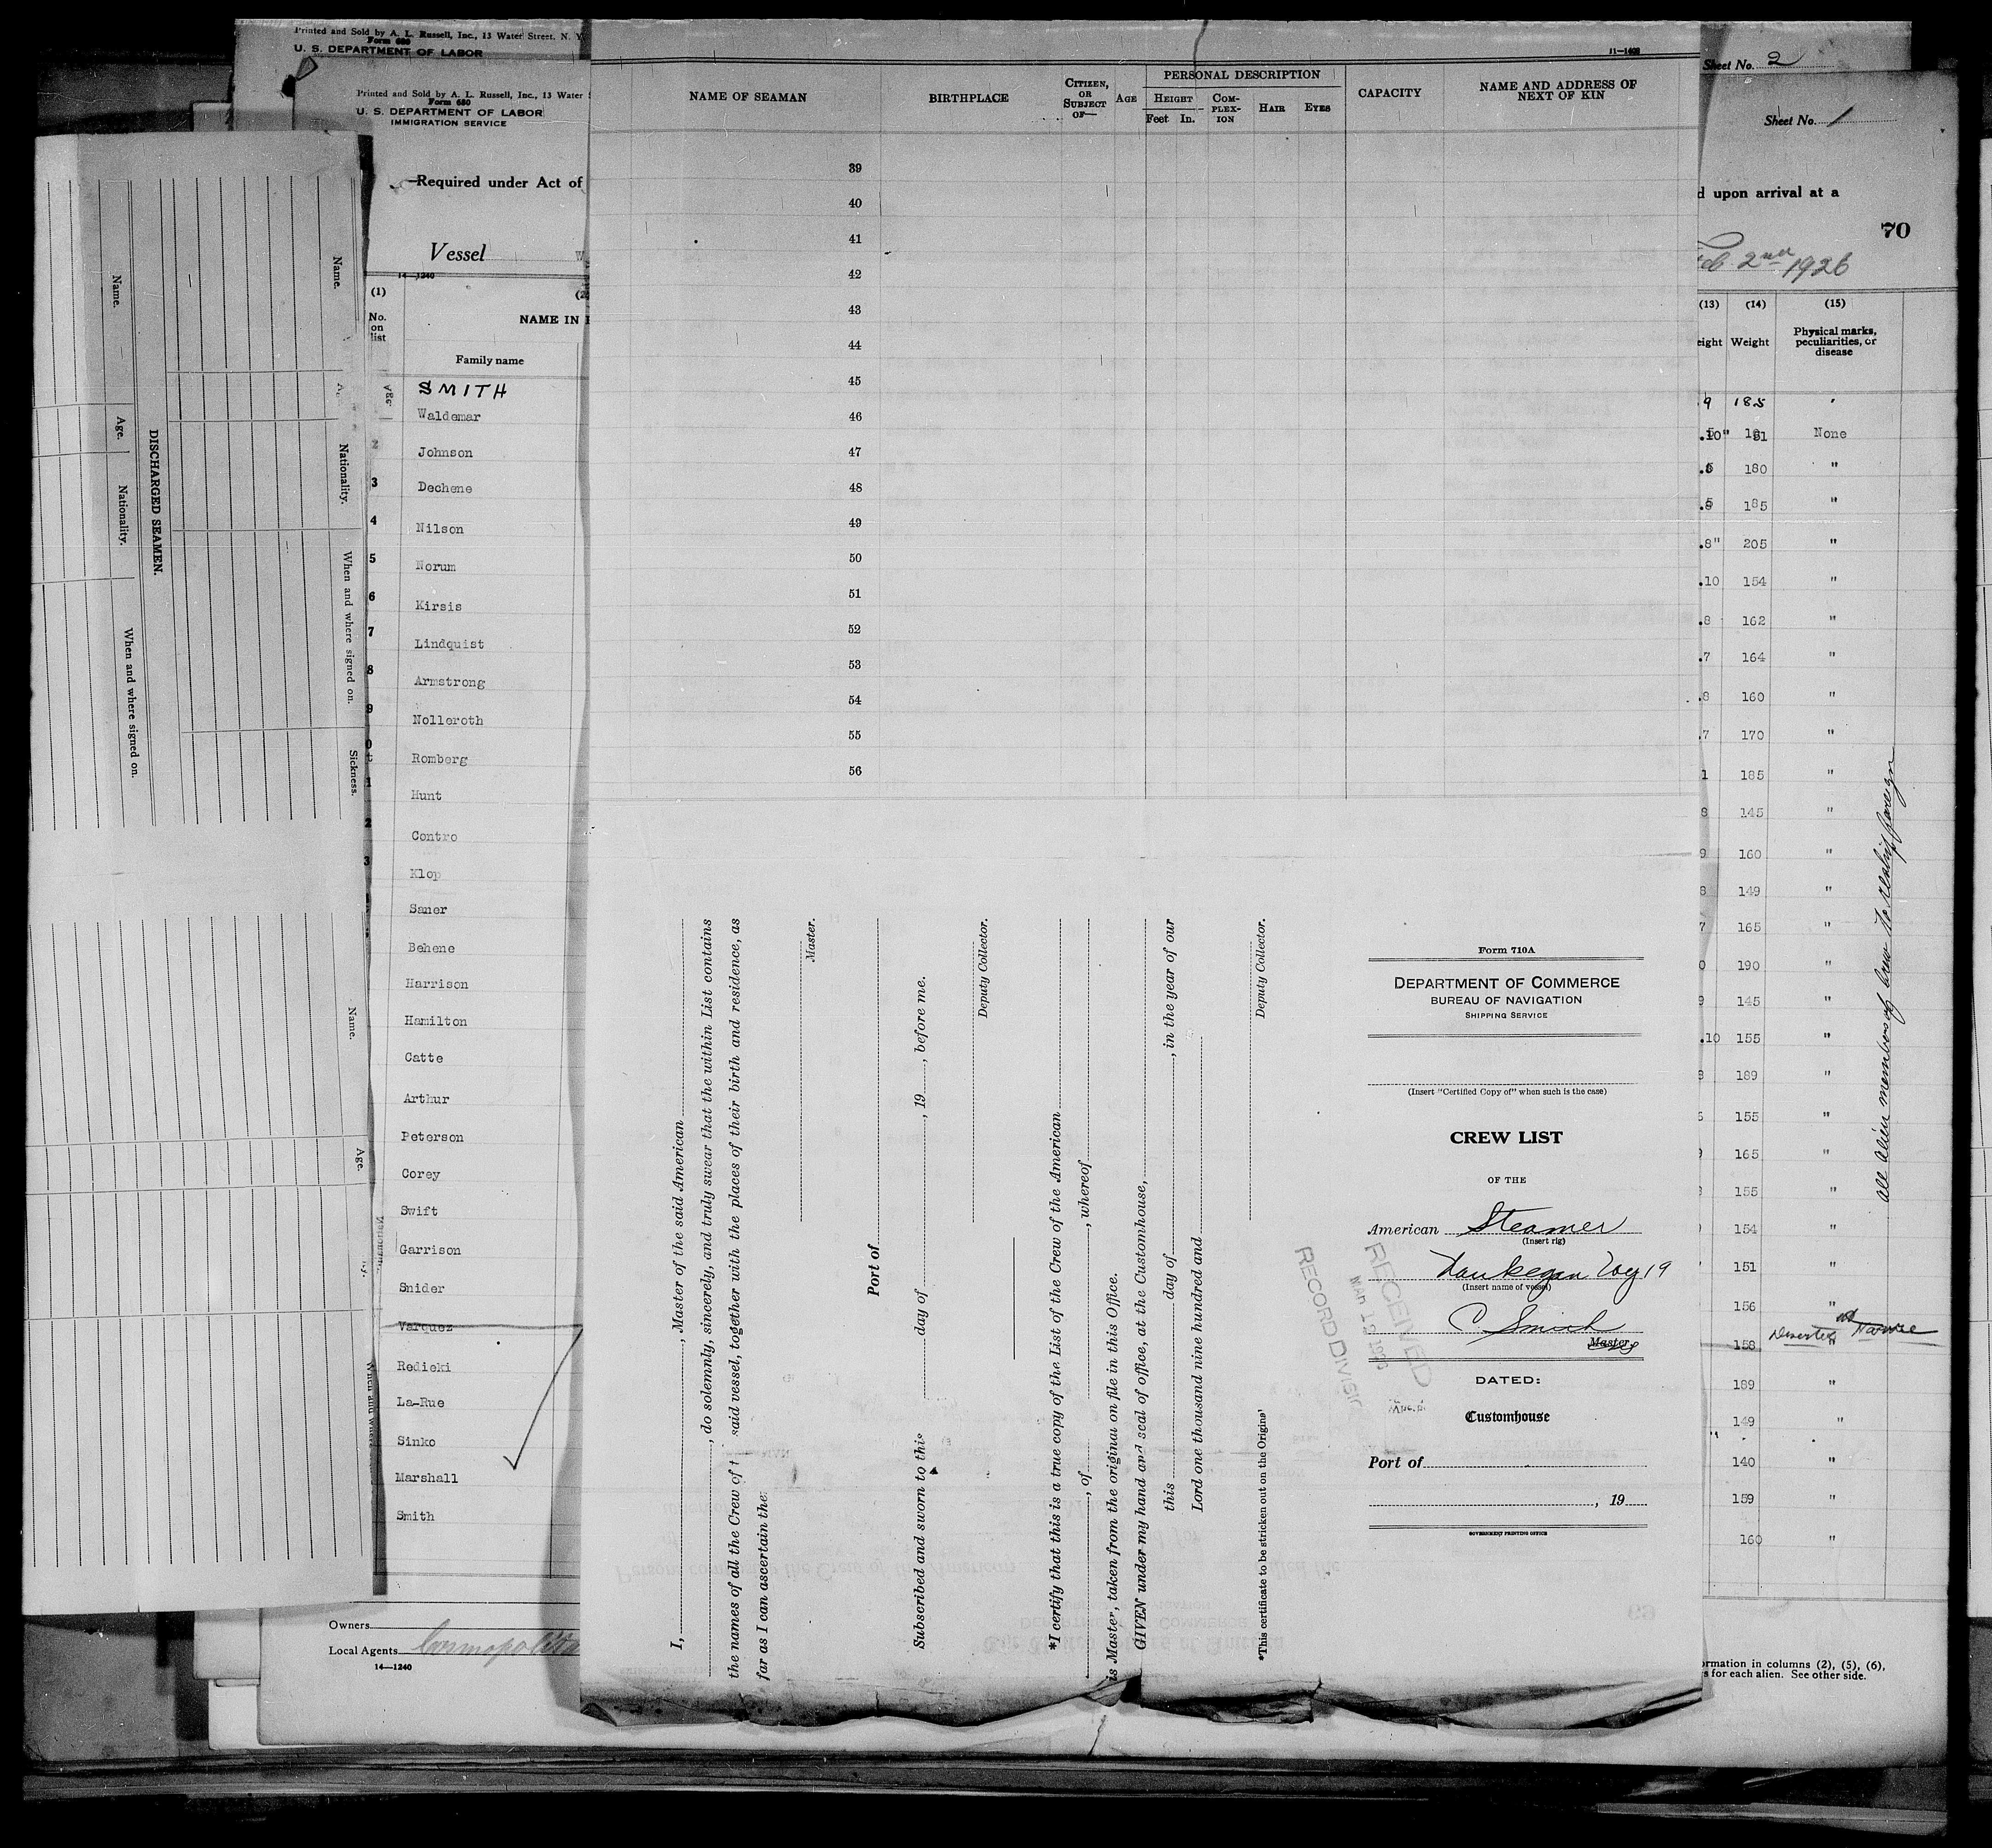 Printed and Sold by A. L. Russell, Inc., 13 Water Street, N. Y.
Form 680
U. S. DEPARTMENT OF LABOR
Printed and Sold by A. L. Russell, Inc., 13 Water
Form 680
U. S. DEPARTMENT OF LABOR
IMMIGRATION SERVICE
Required under Act of
Vessel
14—1240
(1)
No. on list
NAME IN
Family name
SMITH
Waldemar
2 Johnson
3 Dechene
4 Nilson
5 Norum
6 Kirsis
7 Lindquist
8 Armstrong
9 Nolleroth
0 Romberg
1 Hunt
2 Contro
3 Klop
Saner
Behene
Harrison
Hamilton
Catte
Arthur
Peterson
Corey
Swift
Garrison
Snider
Varquez
Redicki
La-Rue
Sinko
Marshall
Smith
Owners
Local Agents Cosmopolita
14—1240
Name.
Age.
Nationality.
When and where signed on.
DISCHARGED SEAMEN.
Name.
Nationality.
When and where signed on.
Sickness.
Name.
Age.
11—1402
NAME OF SEAMAN
BIRTHPLACE
CITIZEN, OR SUBJECT OF—
AGE
PERSONAL DESCRIPTION
HEIGHT
Feet In.
COM-PLEX-ION
HAIR
EYES
CAPACITY
NAME AND ADDRESS OF NEXT OF KIN
39
40
41
42
43
44
45
46
47
48
49
50
51
52
53
54
55
56
I, , Master of the said American
, do solemnly, sincerely, and truly swear that the within List contains
the names of all the Crew of t said vessel, together with the places of their birth and residence, as
far as I can ascertain the
Master.
Port of
Subscribed and sworn to this day of , 19 , before me.
Deputy Collector.
*I certify that this is a true copy of the List of the Crew of the American
, of , whereof
is Master, taken from the original on file in this Office.
GIVEN under my hand and seal of office, at the Customhouse,
this day of , in the year of our
Lord one thousand nine hundred and
Deputy Collector.
*This certificate to be stricken out on the Origina
Form 710A
DEPARTMENT OF COMMERCE
BUREAU OF NAVIGATION
SHIPPING SERVICE
(Insert "Certified Copy of" when such is the case)
CREW LIST
OF THE
American Steamer
(Insert rig)
Waukegan Voy 19
(Insert name of vessel)
C. Smith
Master
RECEIVED
RECORD DIVISI
DATED:
Customhouse
Port of
, 19
GOVERNMENT PRINTING OFFICE
Sheet No. 2
Sheet No. 1
d upon arrival at a
70
Feb. 2nd 1926
(13) (14) (15)
eight Weight Physical marks, peculiarities, or disease
9 185
.10" None
180 "
185 "
.8" 205 "
.10 154 "
.8 162 "
.7 164 "
.8 160 "
.7 170 "
1 185 "
8 145 "
9 160 "
8 149 "
7 165 "
0 190 "
9 145 "
.10 155 "
8 189 "
5 155 "
165 "
155 "
154 "
151 "
156 "
158 " Deserted at Havre
189 "
149 "
140 "
159 "
160 "
All alien members of crew to reship foreign
ormation in columns (2), (5), (6),
s for each alien. See other side.